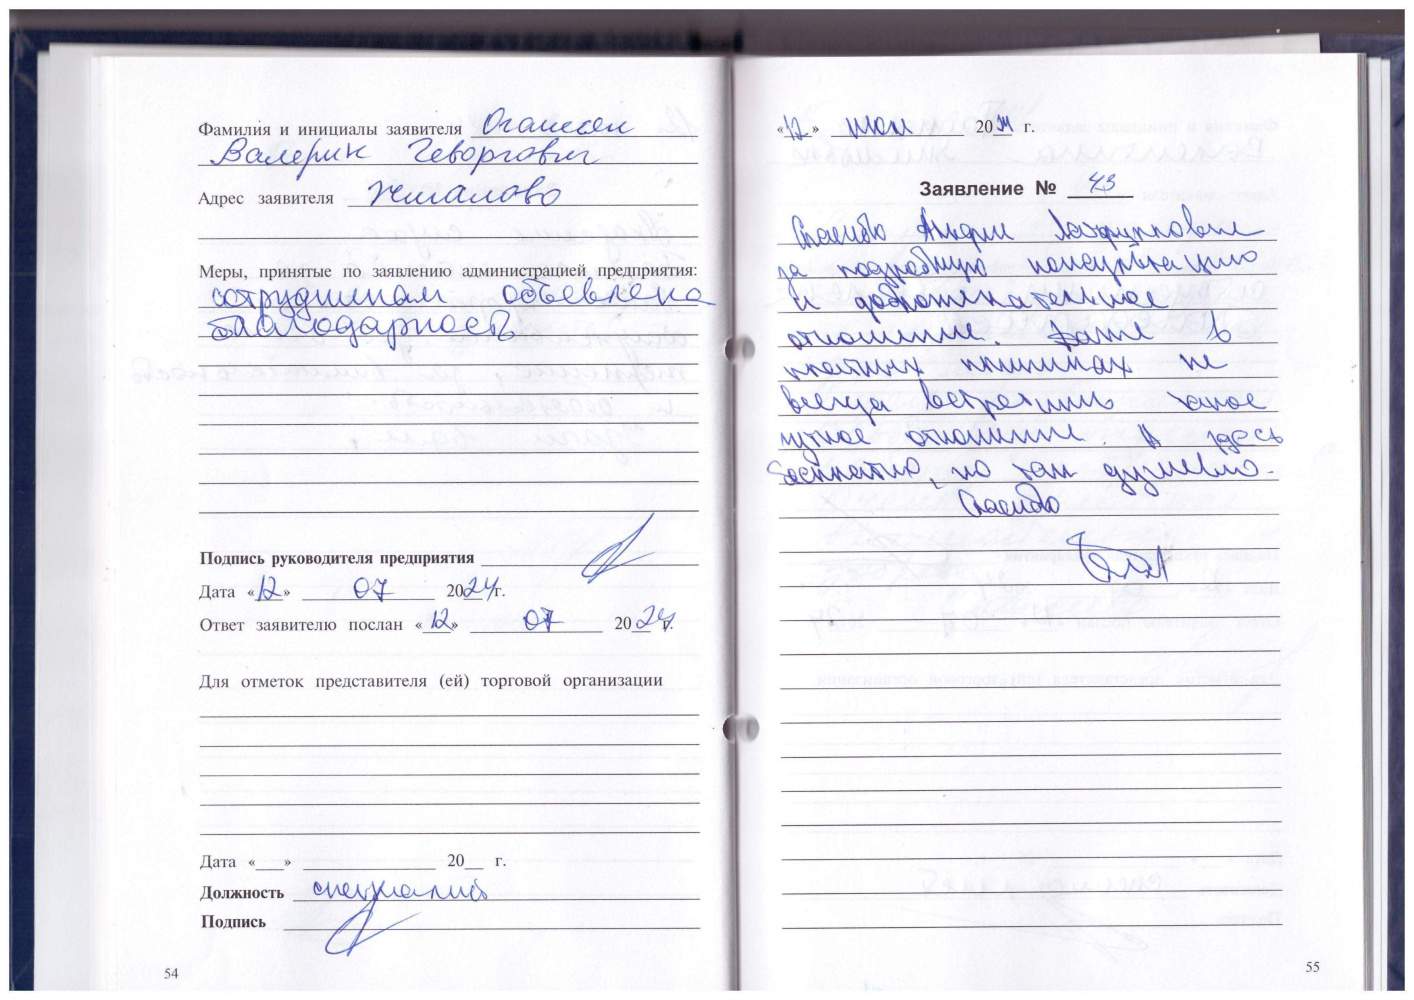 Фамилия и инициалы заявителя Оганисян
Валерик Геворгович
Адрес заявителя
Меры, принятые по заявлению администрацией предприятия:
сотрудникам объявлена
благодарность
Подпись руководителя предприятия
Дата «12» 07 2024 г.
Ответ заявителю послан «12» 07 2024 г.
Для отметок представителя (ей) торговой организации
Дата «__» 20__ г.
Должность специалист
Подпись
54
«12» июля 2024 г.
Заявление № 43
Спасибо
за подробную консультацию
и доброжелательное
отношение. Даже в
платных клиниках не
всегда встретишь такое
чуткое отношение. А здесь
бесплатно, но так душевно.
Спасибо
55